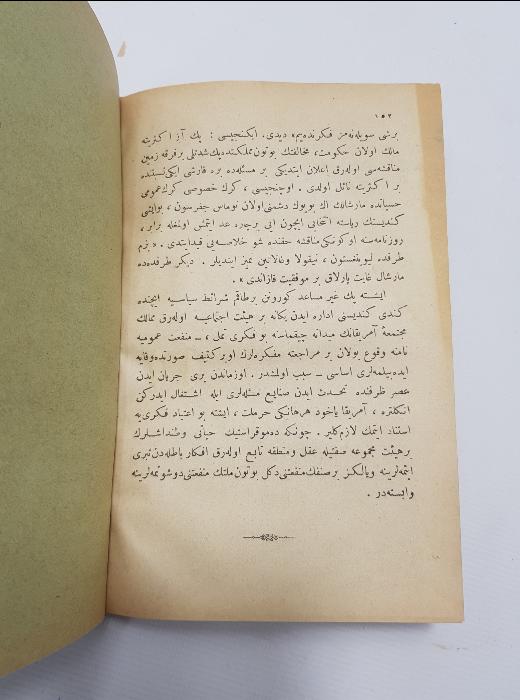 ١٥٢
برشی سویله‌نه‌مز فكرنده‌یم» دیدی. ایكنجیسی : پك آز اكثریته
مالك اولان حكومت، مخالفتك بوتون مملكتده پك شدتلی برفرقه زمین
مناقشه‌سی اوله‌رق اعلان ایتدیكی بر مسئله‌ده بره قارشی ایكی نسبتنده
بر اكثریته نائل اولدی . اوچنجیسی ، كرك خصوصی كرك عمومی
حسیاتده مارشالك اك بویوك دشمنی اولان توماس جفرسون ، بوایشی
كندیسنك ریاسته انتخابی ایچون ایی برچاره عد ایتمش اولمغله برابر ،
روزنامه‌سنه او كونكی مناقشه حقنده شو خلاصه‌یی قیدایتدی . « بزم
طرفده لیوینغستون ، نیقولا وغالاتین تمیز ایتدیلر . دیگر طرفده‌ده
مارشال غایت پارلاق بر موفقیت قازاندی » .
ایشته پك غیر مساعد كورونن برطاقم شرائط سیاسیه ایچنده
كندی كندیسنی اداره ایدن یكانه بر هیئت اجتماعیه اوله‌رق ممالك
مجتمعهٔ آمریقانك میدانه چیقماسنه بو فكری تمل ، ــ منفعت عمومیه
نامنه وقوع بولان بر مراجعته مفكره‌لرك اوبركثیف صورتده وقایه
ایده‌بیلمه‌لری اساسی ــ سبب اولمشدر . اوزماندن بری جریان ایدن
عصر ظرفنده تحدث ایدن صنایع مسئله‌لری ایله اشتغال ایدركن
انكلتره ، آمریقا یاخود هرهانكی حر ملت ، ایشته بو اعتیاد فكری‌یه
استناد ایتمك لازم‌كلیر . چونكه ده‌موقراسینك حیاتی وطنداشلرك
برهیئت مجموعه صفتیله عقل ومنطقه تابع اوله‌رق افكار باطله‌دن تبری
ایتمه‌لرینه ویالكز برصنفك منفعتنی دكل بوتون ملتك منفعتنی دوشونمه‌لرینه
وابسته‌در .